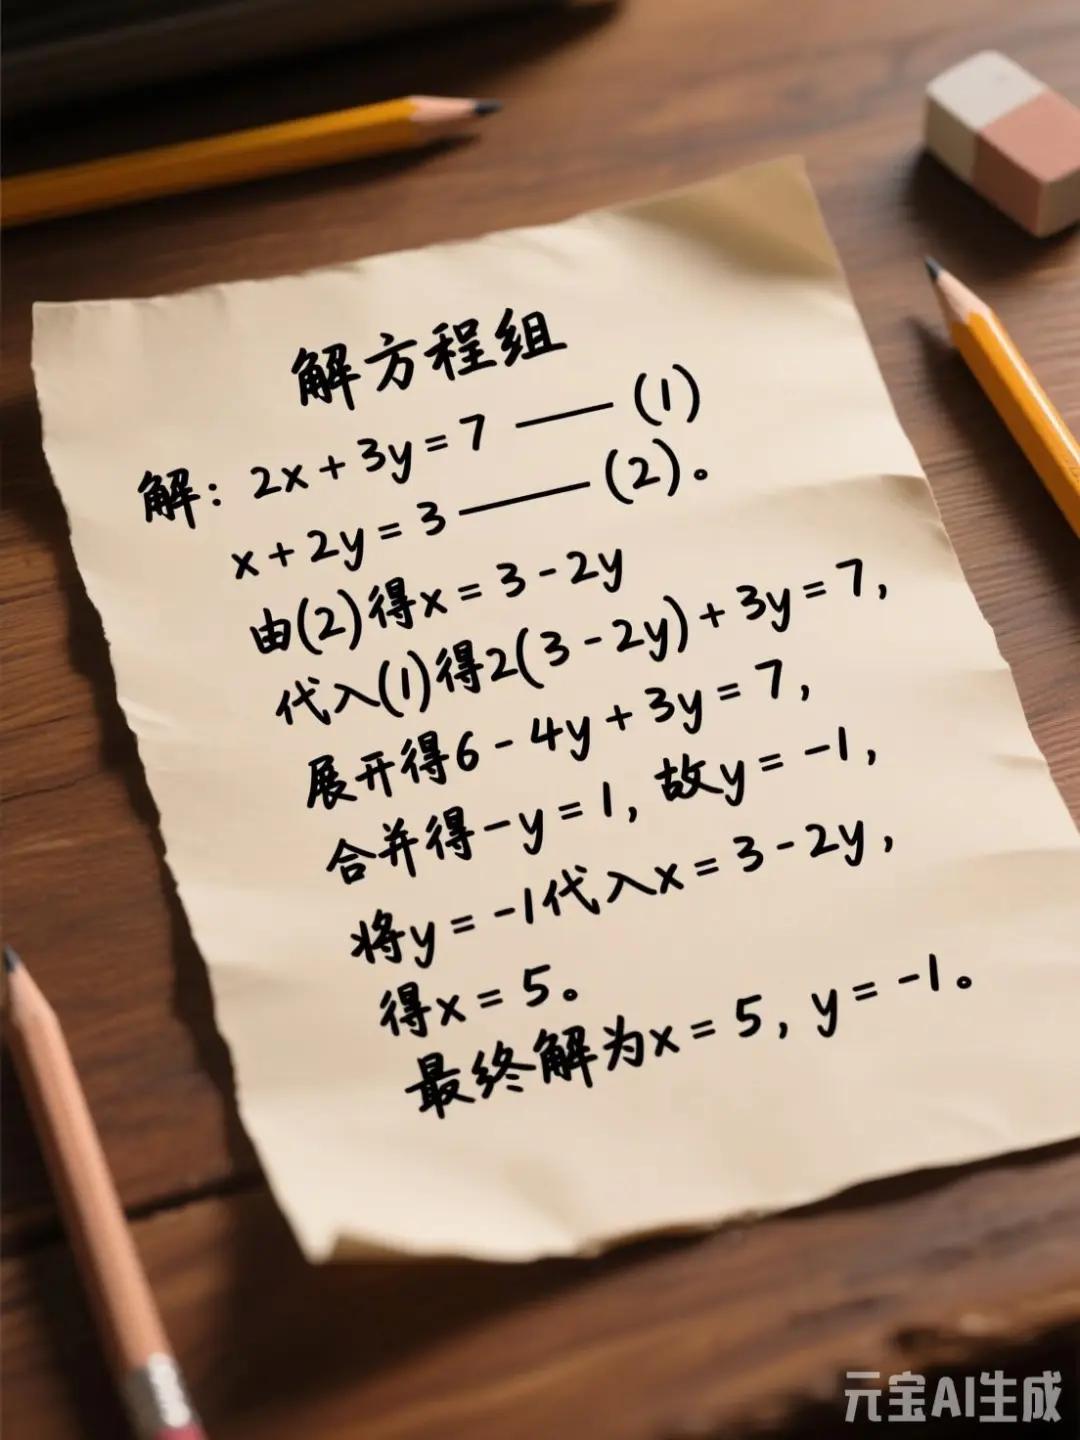 解方程组
解：2x+3y=7 —— (1)
x+2y=3 —— (2)。
由(2)得x=3-2y
代入(1)得2(3-2y)+3y=7，
展开得6-4y+3y=7，
合并得-y=1，故y=-1，
将y=-1代入x=3-2y，
得x=5。
最终解为x=5，y=-1。
元宝AI生成